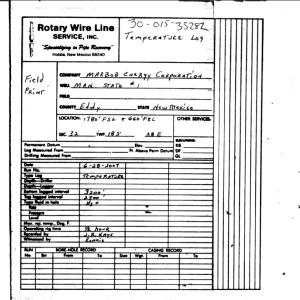 Rotary Wire Line
SERVICE, INC.
"Specializing in Pipe Recovery"
Hobbs, New Mexico 88240
30-015-35282
Temperature Log
Field
Print
COMPANY MARBOB Energy Corporation
WELL MAN STATE #1
FIELD
COUNTY Eddy STATE New Mexico
LOCATION: 1780' FSL & 660' FEL OTHER SERVICES:
SEC 32 TWP 18S 28E
Permanent Datum Elev. KB
Log Measured From Ft. Above Perm Datum DF
Drilling Measured From GL
Date 6-28-2007
Run No.
Type Log Temperature
Depth-Driller
Depth-Logger
Bottom logged interval 3200'
Top logged interval 2500'
Type fluid in hole H2O
Level
Max. rec. temp., Deg. F.
Operating rig time ½ hour
Recorded by J.R. Kays
Witnessed by
RUN BORE-HOLE RECORD CASING RECORD
No. Bit From To Size Wgt. From To